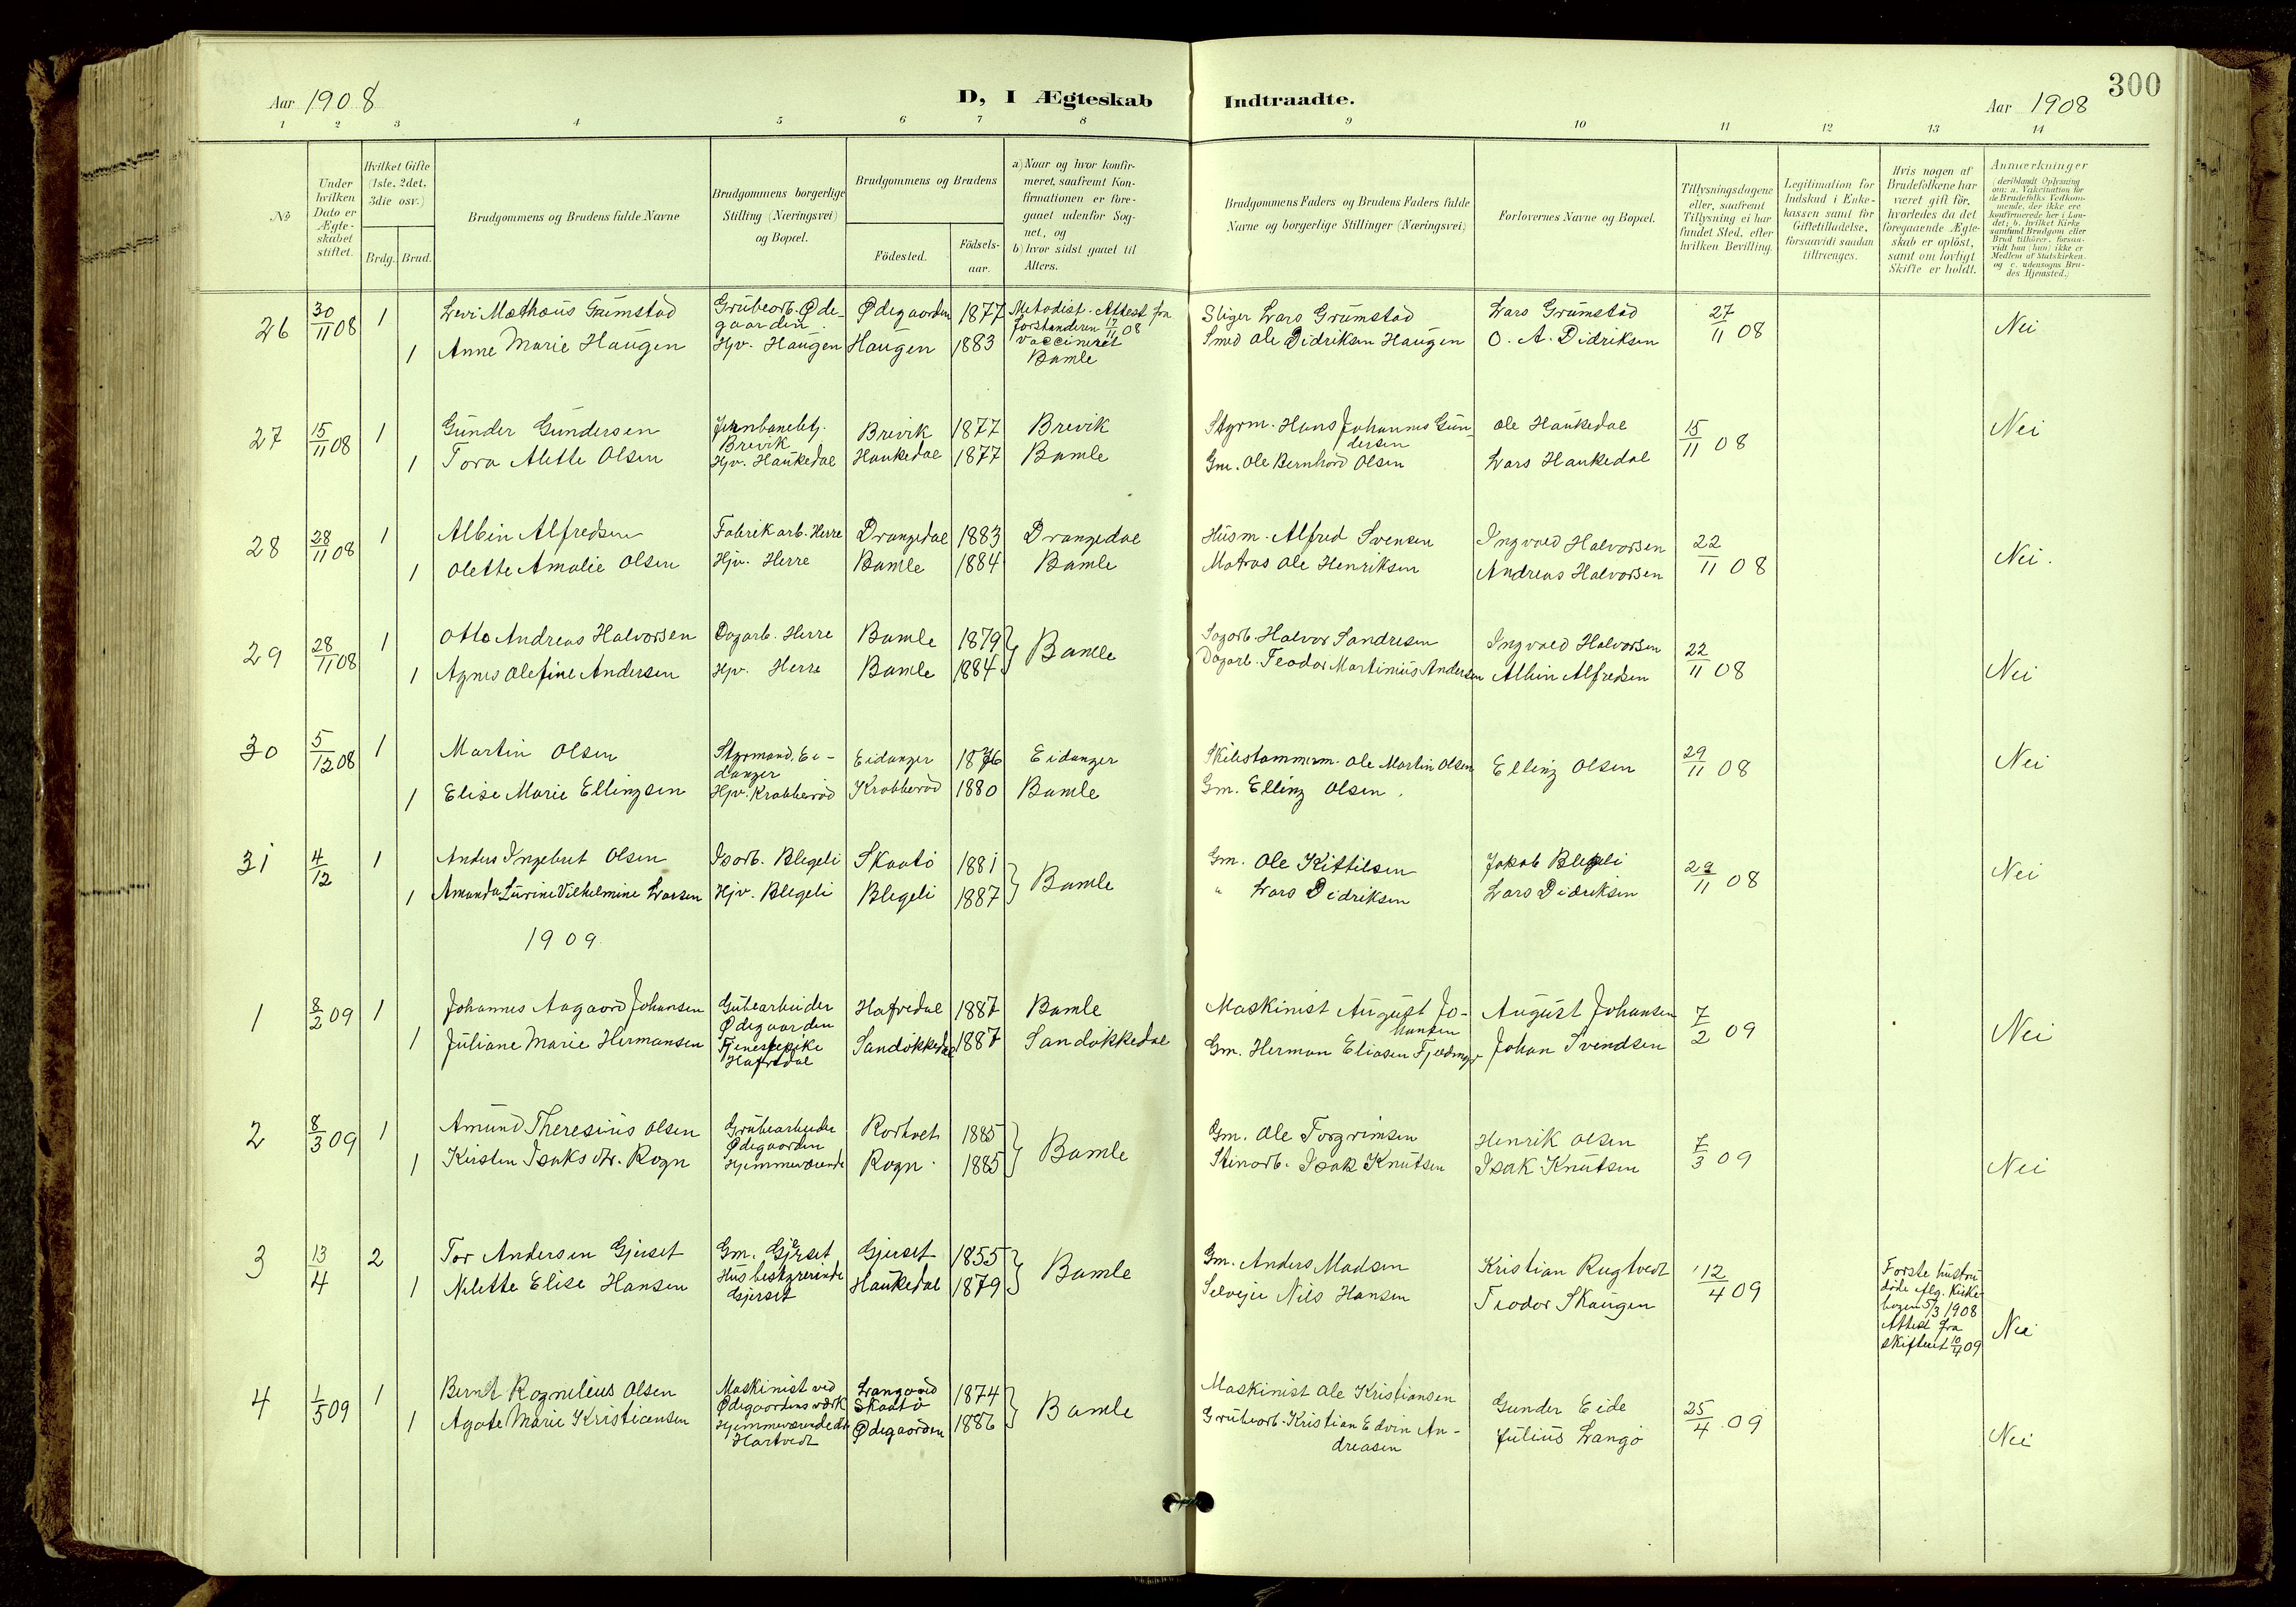 300
Aar 1908
D, I Ægteskab Indtraadte.
Aar 1908
1 2 3 4 5 6 7 8 9 10 11 12 13 14
№
Under hvilken Dato er Ægteskabet stiftet.
Hvilket Gifte (1ste, 2det, 3die osv.)
Brdg. Brud.
Brudgommens og Brudens fulde Navne
Brudgommens borgerlige Stilling (Næringsvei) og Bopæl.
Brudgommens og Brudens
Födested.
Födsels-aar.
a) Naar og hvor konfirmeret, saafremt Konfirmationen er foregaaet udenfor Sognet, og
b) hvor sidst gaaet til Alters.
Brudgommens Faders og Brudens Faders fulde Navne og borgerlige Stillinger (Næringsvei)
Forlovernes Navne og Bopæl.
Tillysningsdagene eller, saafremt Tillysning ei har fundet Sted, efter hvilken Bevilling.
Legitimation for Indskud i Enkekassen samt for Giftetilladelse, forsaavidt saadan tiltrænges.
Hvis nogen af Brudefolkene har været gift för, hvorledes da det foregaaende Ægteskab er oplöst, samt om lovligt Skifte er holdt.
Anmærkninger
(deriblandt Oplysning om: a. Vakcination for de Brudefolks Vedkommende, der ikke ere konfirmerede her i Landet; b. hvilket Kirkesamfund Brudgom eller Brud tilhörer, forsaavidt han (hun) ikke er Medlem af Statskirken og c. udensogns Brudes Hjemsted.)
26 30/11 08 1 Levi Mathæus Grumstad Grubearb. Ødegaarden. Ødegaarden 1877 Methodist. Attest fra forstanderen 17/11 08 vaccineret Stiger Lars Grumstad Lars Grumstad 27/11 08 Nei
1 Anne Marie Haugen Hjv. Haugen Haugen 1883 Bamle Smed Ole Didriksen Haugen O. A. Didriksen
27 15/11 08 1 Gunder Gundersen Jernbanebetj. Brevik Brevik 1877 Brevik Styrm. Hans Johannes Gundersen Ole Haukedal 15/11 08 Nei
1 Tora Alette Olsen Hjv. Haukedal Haukedal 1877 Bamle Gm. Ole Bernhard Olsen Lars Haukedal
28 28/11 08 1 Albin Alfredsen Fabrikarb. Herre Drangedal 1883 Drangedal Husm. Alfred Svensen Ingvald Halvorsen 22/11 08 Nei.
1 Olette Amalie Olsen Hjv. Herre Bamle 1884 Bamle Matros Ole Henriksen Andreas Halvorsen
29 28/11 08 1 Otto Andreas Halvorsen Dagarb. Herre Bamle 1879 } Bamle Sagarb. Halvor Sandresen Ingvald Halvorsen 22/11 08 Nei
1 Agnes Olefine Andersen Hjv. Herre Bamle 1884 Dagarb. Teodor Martinius Andersen Albin Alfredsen
30 5/12 08 1 Martin Olsen Styrmand, Eidanger Eidanger 1876 Eidanger Skibstømmerm. Ole Martin Olsen Elling Olsen 29/11 08 Nei
1 Elise Marie Ellingsen Hjv. Krabberød Krabberød 1880 Bamle Gm. Elling Olsen.
31 4/12 1 Anders Ingebret Olsen Isarb. Blegeli Skaatö 1881 } Bamle Gm. Ole Kittilsen Jakob Blegeli 29/11 08 Nei
1 Amanda Lavine Vilhelmine Larsen Hjv. Blegeli Blegeli 1887 " Lars Didriksen Lars Didriksen
1909.
1 8/2 09 1 Johannes Aagaard Johansen Gubearbeider Ødegaarden Hafredal 1887 Bamle Maskinist August Johansen August Johansen 7/2 09 Nei
1 Juliane Marie Hermansen Tjenestepike Hafredal Sandökkedal 1887 Sandökkedal Gm. Herman Eliasen Johan Svendsen
2 8/3 09 1 Amund Theresius Olsen Grubearbeider Ødegaarden Rorhvet 1885 } Bamle Gm. Ole Torgrimsen Henrik Olsen 7/3 09 Nei
1 Kirsten Isaks dtr. Rogn Hjemmeværende Rogn. 1885 Stenarb. Isak Knutsen Isak Knutsen
3 13/4 2 Tor Andersen Gjerset Gm. Gjerset Gjerset 1855 } Bamle Gm. Anders Madsen Kristian Rugtvedt 12/4 09 Første hustru døde iflg. Kirkebogen 5/3 1908 Attest fra skifteret 10/4 09 Nei
1 Nilette Elise Hansen Husbestyrerinde Gjerset Haukedal 1879 Selveier Nils Hansen Teodor Skaugen
4 1/5 09 1 Bernt Rognilius Olsen Maskinist ved Ødegaardens værk Langaard Skaatö 1874 } Bamle Maskinist Ole Kristiansen Gunder Eide 25/4 09 Nei
1 Agate Marie Kristiansen Hjemmeværende Hartvedt Ødegaarden 1886 Grubearb. Kristian Edvin Andreasen Julius Langö